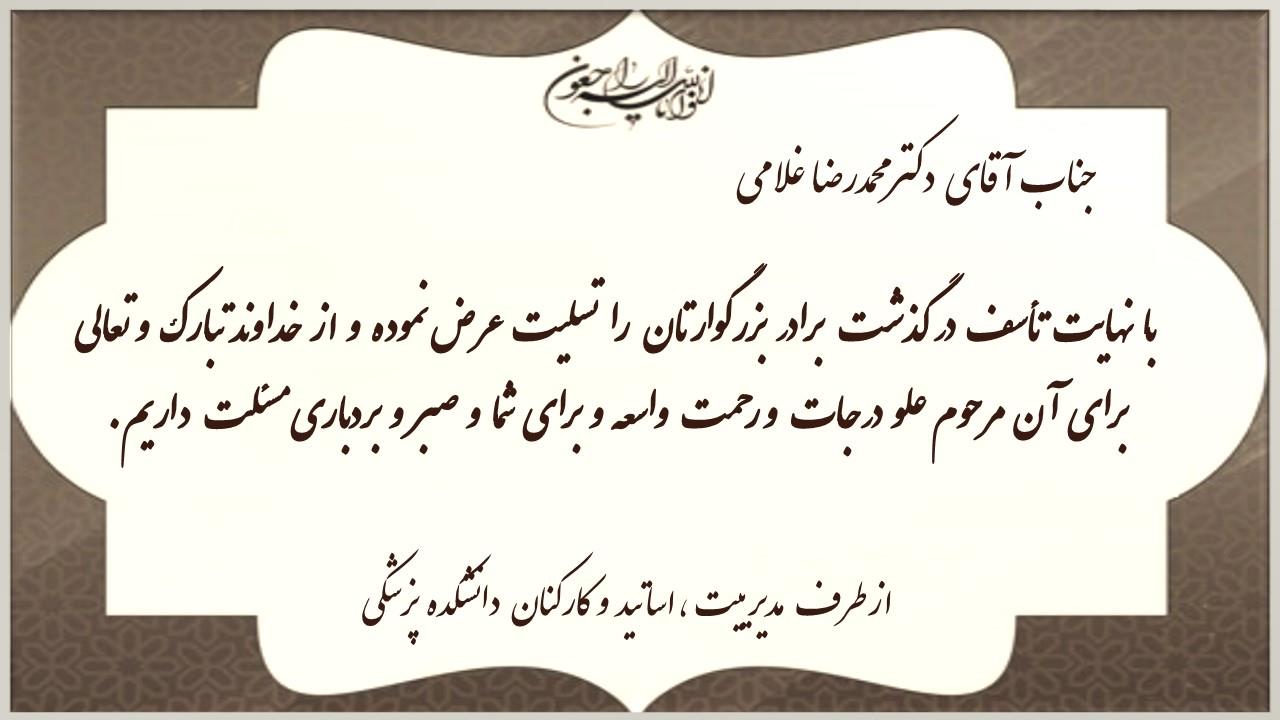 انا لله و انا الیه راجعون
جناب آقای دکتر محمدرضا غلامی
با نهایت تأسف درگذشت برادر بزرگوارتان را تسلیت عرض نموده و از خداوند تبارک و تعالی
برای آن مرحوم علو درجات و رحمت واسعه و برای شما و صبر و بردباری مسئلت داریم.
از طرف مدیریت ، اساتید و کارکنان دانشکده پزشکی